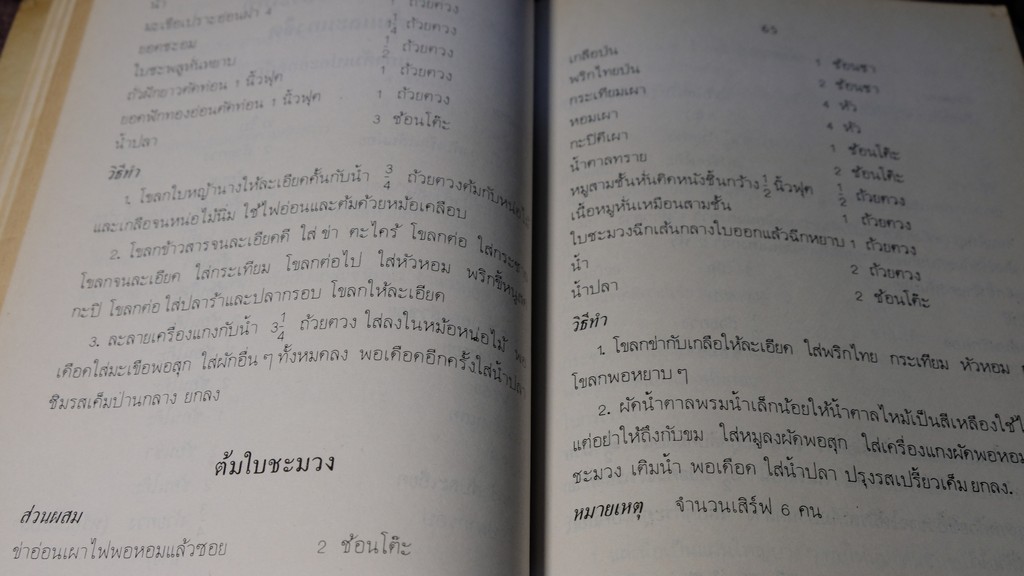 น้ำ 1 ถ้วยตวง
มะเขือเปราะอ่อนผ่า 4 ถ้วยตวง
ยอดชะอม ถ้วยตวง
ใบชะพลูหั่นหยาบ 1/2 ถ้วยตวง
ถั่วฝักยาวตัดท่อน 1 นิ้วฟุต 1 ถ้วยตวง
ยอดฟักทองอ่อนตัดท่อน 1 นิ้วฟุต 1 ถ้วยตวง
น้ำปลา 3 ช้อนโต๊ะ
วิธีทำ
1. โขลกใบหญ้านางให้ละเอียดคั้นกับน้ำ 3/4 ถ้วยตวงต้มกับหน่อไม้
และเกลือจนหน่อไม้นิ่ม ใช้ไฟอ่อนและต้มด้วยหม้อเคลือบ
2. โขลกข้าวสารจนละเอียดดี ใส่ ข่า ตะไคร้ โขลกต่อ ใส่กระชาย
โขลกจนละเอียด ใส่กระเทียม โขลกต่อไป ใส่หัวหอม พริกขี้หนูสด
กะปิ โขลกต่อ ใส่ปลาร้าและปลากรอบ โขลกให้ละเอียด
3. ละลายเครื่องแกงกับน้ำ 3 1/4 ถ้วยตวง ใส่ลงในหม้อหน่อไม้ พอ
เดือดใส่มะเขือพอสุก ใส่ผักอื่น ๆ ทั้งหมดลง พอเดือดอีกครั้งใส่น้ำปลา
ชิมรสเค็มปานกลาง ยกลง
ต้มใบชะมวง
ส่วนผสม
ข่าอ่อนเผาไฟพอหอมแล้วซอย 2 ช้อนโต๊ะ
65
เกลือป่น 1 ช้อนชา
พริกไทยป่น 2 ช้อนชา
กระเทียมเผา 4 หัว
หอมเผา 4 หัว
กะปิดีเผา 1 ช้อนโต๊ะ
น้ำตาลทราย 2 ช้อนโต๊ะ
หมูสามชั้นหั่นติดหนังชิ้นกว้าง 1/2 นิ้วฟุต 1/2 ถ้วยตวง
เนื้อหมูหั่นเหมือนสามชั้น 1 ถ้วยตวง
ใบชะมวงฉีกเส้นกลางใบออกแล้วฉีกหยาบ 1 ถ้วยตวง
น้ำ 2 ถ้วยตวง
น้ำปลา 2 ช้อนโต๊ะ
วิธีทำ
1. โขลกข่ากับเกลือให้ละเอียด ใส่พริกไทย กระเทียม หัวหอม
โขลกพอหยาบ ๆ
2. ผัดน้ำตาลพรมน้ำเล็กน้อยให้น้ำตาลไหม้เป็นสีเหลืองใช้ได้
แต่อย่าให้ถึงกับขม ใส่หมูลงผัดพอสุก ใส่เครื่องแกงผัดพอหอม
ชะมวง เติมน้ำ พอเดือด ใส่น้ำปลา ปรุงรสเปรี้ยวเค็ม ยกลง.
หมายเหตุ จำนวนเสิร์ฟ 6 คน